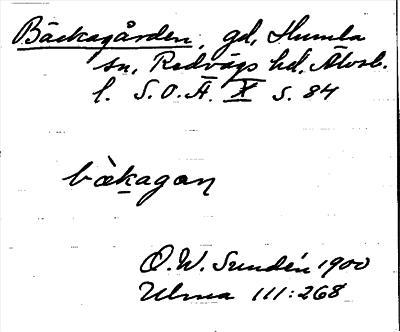 Bäckagården, gd, Humla
sn, Redvägs hd, Älvsb.
l. S.O.Ä. X S. 84
bækagan
O.W. Sundén 1900
Ulma 111:268